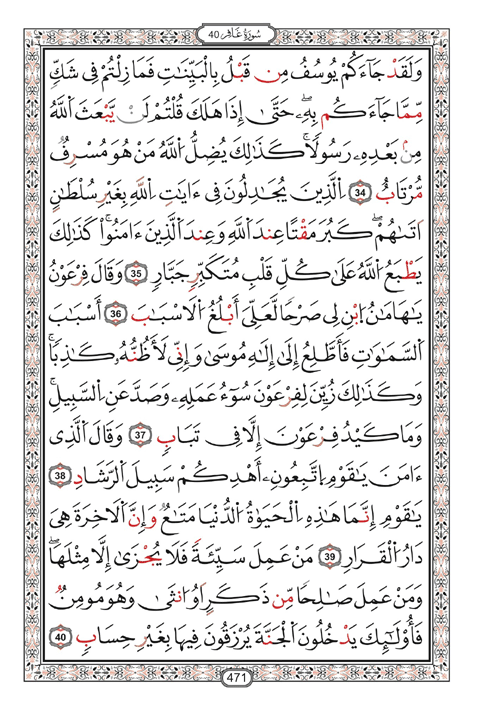 سُورَةُ غَافِر 40
وَلَقَدْ جَآءَكُمْ يُوسُفُ مِن قَبْلُ بِالْبَيِّنَٰتِ فَمَا زِلْتُمْ فِى شَكٍّ
مِّمَّا جَآءَكُم بِهِۦۖ حَتَّىٰٓ إِذَا هَلَكَ قُلْتُمْ لَنْ يَّبْعَثَ اَ۬للَّهُ
مِنۢ بَعْدِهِۦ رَسُولٗاۖ كَذَٰلِكَ يُضِلُّ اُ۬للَّهُ مَنْ هُوَ مُسْرِفٞ
مُّرْتَابٌ 34 اِ۬لَّذِينَ يُجَٰدِلُونَ فِىٓ ءَايَٰتِ اِ۬للَّهِ بِغَيْرِ سُلْطَٰنٍ
اَتَىٰهُمْۖ كَبُرَ مَقْتًا عِندَ اَ۬للَّهِ وَعِندَ اَ۬لَّذِينَ ءَامَنُواْۖ كَذَٰلِكَ
يَطْبَعُ اُ۬للَّهُ عَلَىٰ كُلِّ قَلْبِ مُتَكَبِّرٖ جَبَّارٖ 35 وَقَالَ فِرْعَوْنُ
يَٰهَامَٰنُ اُ۪بْنِ لِى صَرْحٗا لَّعَلِّىَ أَبْلُغُ اُ۬لَاسْبَٰبَ 36 أَسْبَٰبَ
اَ۬لسَّمَٰوَٰتِ فَأَطَّلِعُ إِلَىٰٓ إِلَٰهِ مُوسَىٰ وَإِنِّى لَأَظُنُّهُۥ كَٰذِبٗاۖ
وَكَذَٰلِكَ زُيِّنَ لِفِرْعَوْنَ سُوٓءُ عَمَلِهِۦ وَصَدَّ عَنِ اِ۬لسَّبِيلِۖ
وَمَا كَيْدُ فِرْعَوْنَ إِلَّا فِى تَبَابٖ 37 وَقَالَ اَ۬لَّذِىٓ
ءَامَنَ يَٰقَوْمِ اِ۪تَّبِعُونِۦٓ أَهْدِكُمْ سَبِيلَ اَ۬لرَّشَادِ 38
يَٰقَوْمِ إِنَّمَا هَٰذِهِ اِ۬لْحَيَوٰةُ اُ۬لدُّنْيَا مَتَٰعٞ وَإِنَّ اَ۬لَاخِرَةَ هِىَ
دَارُ اُ۬لْقَرَارِ 39 مَنْ عَمِلَ سَيِّئَةٗ فَلَا يُجْزَىٰٓ إِلَّا مِثْلَهَاۖ
وَمَنْ عَمِلَ صَٰلِحٗا مِّن ذَكَرٍ اَوُ ا۟نثَىٰ وَهُوَ مُومِنٞ
فَأُوْلَٰٓئِكَ يَدْخُلُونَ اَ۬لْجَنَّةَ يُرْزَقُونَ فِيهَا بِغَيْرِ حِسَابٖ 40
471